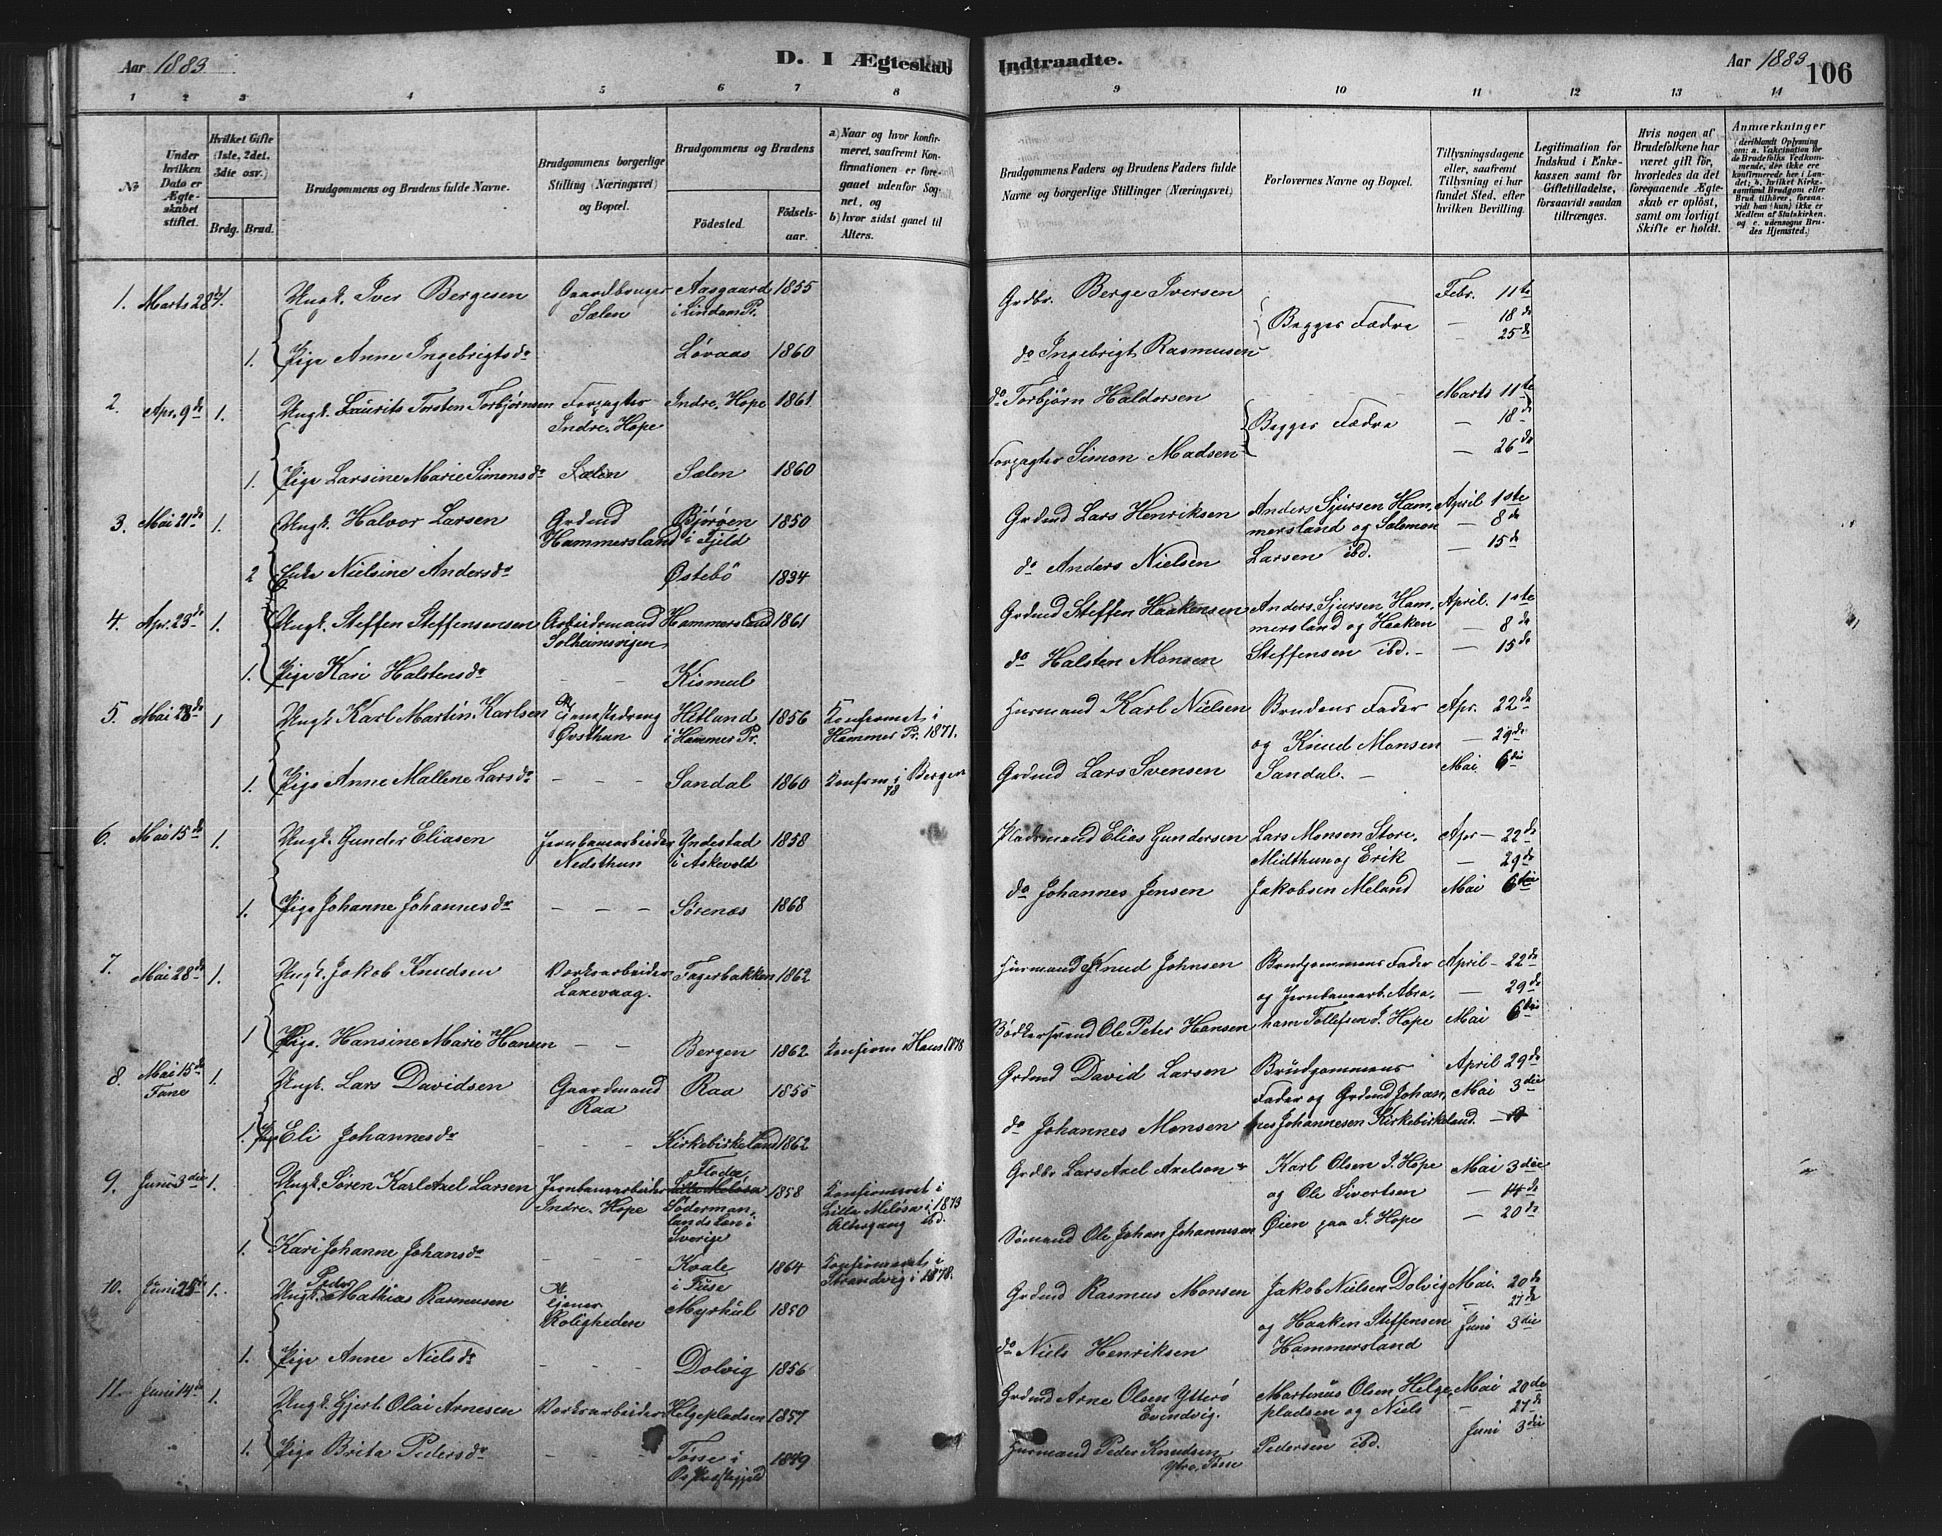 Aar 1883.
D. I Ægteskab
1 2 3 4 5 6 7 8
№
Under hvilken Dato er Ægteskabet stiftet.
Hvilket Gifte (1ste, 2det, 3die osv.)
Brdg. Brud.
Brudgommens og Brudens fulde Navne.
Brudgommens borgerlige Stilling (Næringsvei) og Bopæl.
Brudgommens og Brudens
Födested.
Födselsaar.
a) Naar og hvor konfirmeret, saafremt Konfirmationen er foregaaet udenfor Sognet, og
b) hvor sidst gaaet til Alters.
1. Marts 28de 1. Ungk. Iver Bergesen Gaardbruger Aasgaard 1855
Sælen i Lindaas Pr.
1. Pige Anne Ingebrigtsdr Løvaas 1860
2. Apr. 9de 1. Ungk. Laurits Torsten Torbjørnsen Forpagter Indre Hope 1861
Indre Hope
1. Pige Larsine Marie Simonsdr Sælen Sælen 1860
3. Mai 21de 1. Ungk. Halvor Larsen Grdmd Bjorøen 1850
Hammersland i Fjeld
2 Enke Nielsine Andersdr Østebö 1834
4. Apr. 23de 1. Ungk. Steffen Steffensen Arbeidsmand Hammersland 1861
Solheimsvigen
1. Pige Kari Halstensdr – – Kismul
5. Mai 28de 1 Ungk. Karl Martin Karlsen Tjenestedreng Hitland 1856 Konfirmet i
Øvsthun i Hammer Pr. Hammer Pr. 1871.
1. Pige Anne Mallene Larsdr – – – Sandal 1860 Konfirm i Bergen
78
6. Mai 15de 1. Ungk. Gunder Eliasen Jernbanearbeider Yndestad 1858
Nedsthun i Askevold
1. Pige Johanne Johannesdr – – – Sørenæs 1868
7. Mai 28de 1. Ungk. Jakob Knudsen Værksarbeider Fagerbakken 1862
Laxevaag.
1 Pige Hansine Marie Hansen – – Bergen 1862 Konfirm i Haus 1878
8. Mai 15de 1. Ungk. Lars Davidsen Gaardmand Raa 1855
Fane Raa
1. Pige Eli Johannesdr – – – Kirkebirkeland 1862
9. Juni 3die 1. Ungk. Sören Karl Axel Larsen Jernbanearbeider Floda 1858 Konfirmeret i
Indre Hope Söderman- Lilla Melösa i 1873
landslän i Altergang ibd.
Sverige
1. Kari Johanne Johansdr – – – Kvale 1864 Konfirmeret i
i Fuse Strandvig i 1878.
10. Juni 25de 1. Ungk. Peder Mathias Rasmusen Tjener Myrkul 1850
Roligheden
1. Pige Anne Nielsdr – – – Dolvig 1856
11. Juni 14de 1. Ungk. Gjert Olai Arnesen Værksarbeider Helgepladsen 1857
1. Pige Brita Pedersdr – – – Tøsse i 1849
Os Præstegjeld
Indtraadte.
Aar 1883
106
9 10 11 12 13 14
Brudgommens Faders og Brudens Faders fulde Navne og borgerlige Stillinger (Næringsvei)
Forlovernes Navne og Bopæl.
Tillysningsdagene eller, saafremt Tillysning ei har fundet Sted, efter hvilken Bevilling.
Legitimation for Indskud i Enkekassen samt for Giftetilladelse, forsaavidt saadan tiltrænges.
Hvis nogen af Brudefolkene har været gift för, hvorledes da det foregaaende Ægteskab er oplöst, samt om lovligt Skifte er holdt.
Anmærkninger
(deriblandt Oplysning om: a. Vakcination for de Brudefolks Vedkommende, der ikke ere konfirmerede her i Landet; b. hvilket Kirkesamfund Brudgom eller Brud tilhörer, forsaavidt han (hun) ikke er Medlem af Statskirken, og c. udensogns Brudes Hjemsted.)
Grdbr. Berge Iversen Febr. 11te
Begges Fædre — 18de
— 25de
do Ingebrigt Rasmusen
do Torbjørn Haldorsen – – – Marts 11te
Begges Fædre — 18de
Forpagter Simon Madsen — 26de
Grdmd Lars Henriksen Anders Sjursen Ham- April 1ste
mersland og Salomon — 8de
do Anders Nielsen Larsen ibd. — 15de
Grdmd Steffen Haakensen Anders Sjursen Ham- April. 1ste
mersland og Haaken — 8de
do Halsten Monsen Steffensen ibd. — 15de
Husmand Karl Nielsen Brudens Fader Apr. 22de
og Knud Monsen — 29de
Grdmd Lars Svensen Sandal. — Mai 6te
Pladsmand Elias Gundersen Lars Monsen Store- Apr – 22de
Midthun og Erik — 29de
do Johannes Jensen Jakobsen Meland Mai 6te
Husmand Knud Johnsen Brudgommens Fader April – 22de
og Jernbanearb. Abra- — 29de
Bødkersvend Ole Peter Hansen ham Tollefsen I. Hope Mai 6te
Grdmd David Larsen Brudgommens April 29de
Fader og Grdmd Johan- Mai 3die
do Johannes Monsen nes Johannesen Kirkebirkeland. —
Grdbr Lars Axel Axelson Karl Olsen I. Hope Mai 3die
og Ole Sivertsen — 14de
Sømand Ole Johan Johannesen Øien paa I. Hope — 20de
Grdmd Rasmus Monsen Jakob Nielsen Dolvig Mai. 20de
— 27de
og Haaken Steffensen Juni 3die
do Niels Henriksen Hammersland
Grdmd Arne Olsen Ytterö Martinus Olsen Helge- Mai 20de
Evindvig. pladsen og Niels — 27de
Husmand Peder Knudsen Pedersen ibd. Juni 3die
Ytre Tøsse